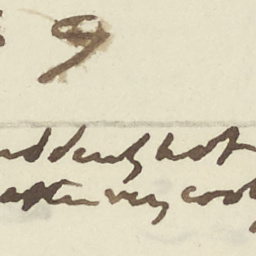 9
uddenly hot
after very cool